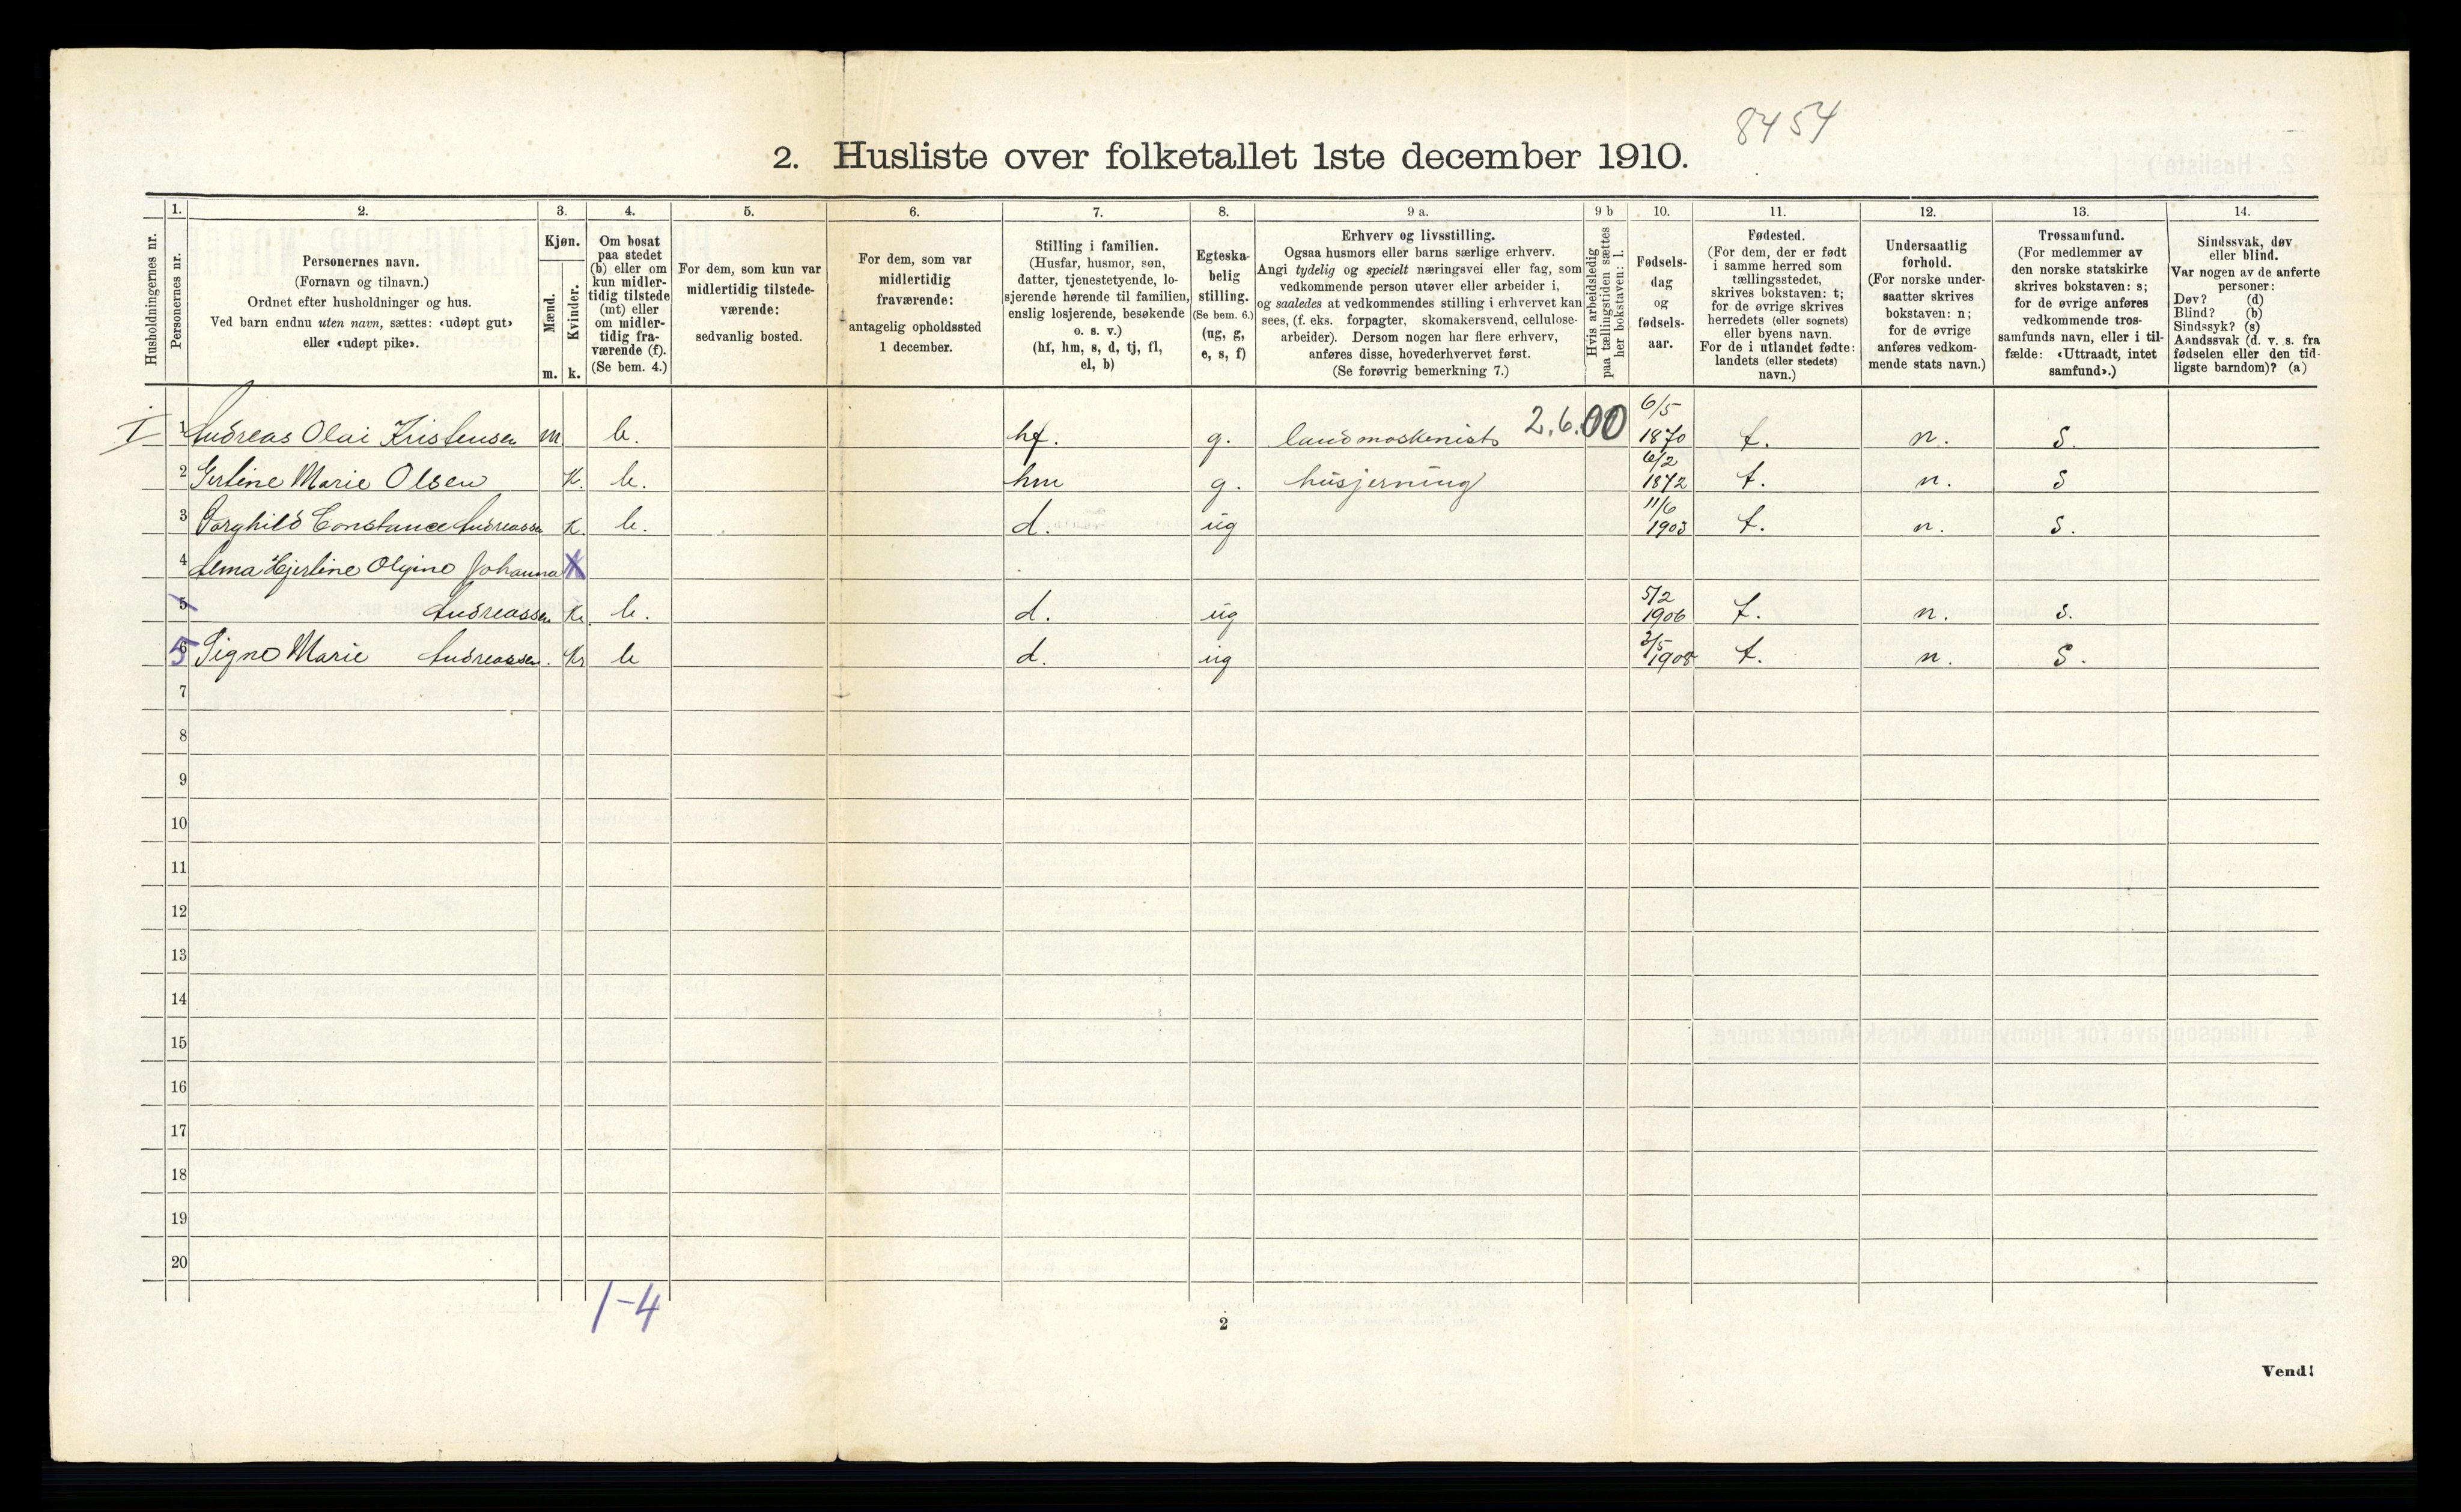 8454
2. Husliste over folketallet 1ste december 1910.
Husholdningernes nr.
1.
Personernes nr.
2.
Personernes navn.
(Fornavn og tilnavn.)
Ordnet efter husholdninger og hus.
Ved barn endnu uten navn, sættes: «udøpt gut»
eller «udøpt pike».
3.
Kjøn.
Mænd.
Kvinder.
m. k.
4.
Om bosat
paa stedet
(b) eller om
kun midler-
tidig tilstede
(mt) eller
om midler-
tidig fra-
værende (f).
(Se bem. 4.)
5.
For dem, som kun var
midlertidig tilstede-
værende:
sedvanlig bosted.
6.
For dem, som var
midlertidig
fraværende:
antagelig opholdssted
1 december.
7.
Stilling i familien.
(Husfar, husmor, søn,
datter, tjenestetyende, lo-
sjerende hørende til familien,
enslig losjerende, besøkende
o. s. v.)
(hf, hm, s, d, tj, fl,
el, b)
8.
Egteska-
belig
stilling.
(Se bem. 6.)
(ug, g,
e, s, f)
9 a.
Erhverv og livsstilling.
Ogsaa husmors eller barns særlige erhverv.
Angi tydelig og specielt næringsvei eller fag, som
vedkommende person utøver eller arbeider i,
og saaledes at vedkommendes stilling i erhvervet kan
sees, (f. eks. forpagter, skomakersvend, cellulose-
arbeider). Dersom nogen har flere erhverv,
anføres disse, hovederhvervet først.
(Se forøvrig bemerkning 7.)
9 b
Hvis arbeidsledig
paa tællingstiden sættes
her bokstaven: l.
10.
Fødsels-
dag
og
fødsels-
aar.
11.
Fødested.
(For dem, der er født
i samme herred som
tællingsstedet,
skrives bokstaven: t;
for de øvrige skrives
herredets (eller sognets)
eller byens navn.
For de i utlandet fødte:
landets (eller stedets)
navn.)
12.
Undersaatlig
forhold.
(For norske under-
saatter skrives
bokstaven: n;
for de øvrige
anføres vedkom-
mende stats navn.)
13.
Trossamfund.
(For medlemmer av
den norske statskirke
skrives bokstaven: s;
for de øvrige anføres
vedkommende tros-
samfunds navn, eller i til-
fælde: «Uttraadt, intet
samfund».)
14.
Sindssvak, døv
eller blind.
Var nogen av de anførte
personer:
Døv? (d)
Blind? (b)
Sindssyk? (s)
Aandssvak (d. v. s. fra
fødselen eller den tid-
ligste barndom)? (a)
I 1 Andreas Olai Kristensen m b. hf. g. landmaskenist 2.6.00 6/5 1870 t. n. s.
2 Gertine Marie Olsen K. b. hm g. husjerning 6/2 1872 t. n. s
3 Borghild Constance Andreassen K. b. d. ug 11/6 1903 t. n. s.
4 Alma Hjertine Olgine Johanna
5 Andreassen K. b. d. ug 5/2 1906 t. n. s.
6 5 Signe Marie Andreassen. K b d. ug 3/5 1908 t. n. s.
7
8
9
10
11
12
13
14
15
16
17
18
19
20
1-4
2
Vend!